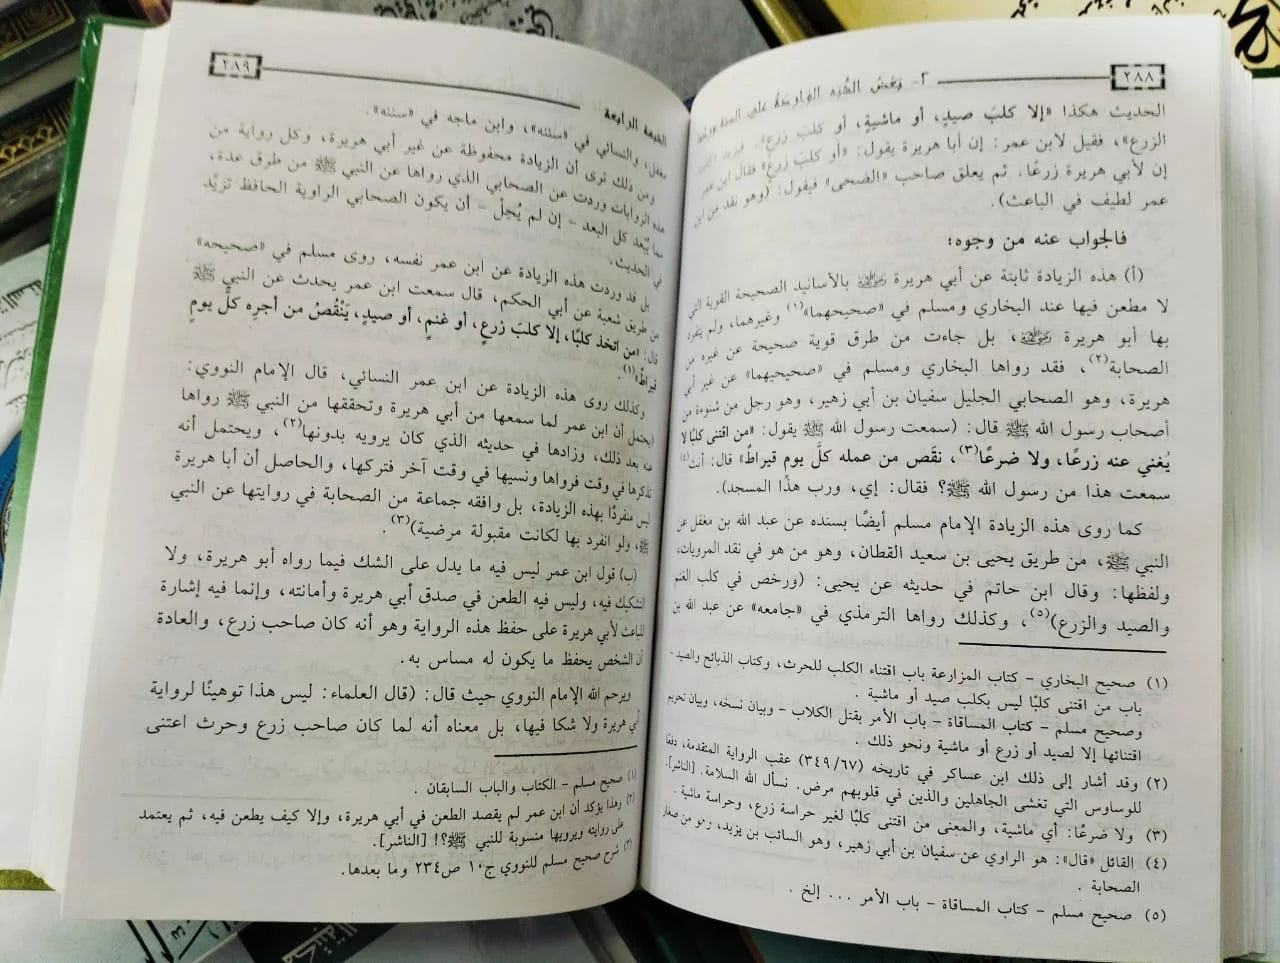 ٢٨٨
٢ــ بعض الشُّبَه الواردة على السنة وردها
الحديث هكذا «إلا كلبَ صيدٍ، أو ماشيةٍ، أو كلبَ زرع». فيزيد
الزرع»، فقيل لابن عمر: إن أبا هريرة يقول: «أو كلبَ زرعٍ» فقال ابن عمر
إن لأبي هريرة زرعًا. ثم يعلق صاحب «الضحى» فيقول: (وهو نقد من ابن
عمر لطيف في الباعث).
فالجواب عنه من وجوه:
(أ) هذه الزيادة ثابتة عن أبي هريرة رضي الله عنه بالأسانيد الصحيحة القوية التي
لا مطعن فيها عند البخاري ومسلم في «صحيحهما»(١) وغيرهما، ولم ينفرد
بها أبو هريرة رضي الله عنه، بل جاءت من طرق قوية صحيحة عن غيره من
الصحابة(٢)، فقد رواها البخاري ومسلم في «صحيحيهما» عن غير أبي
هريرة، وهو الصحابي الجليل سفيان بن أبي زهير، وهو رجل من شنوءة من
أصحاب رسول الله ﷺ قال: (سمعت رسول الله ﷺ يقول: «من اقتنى كلبًا لا
يُغني عنه زرعًا، ولا ضرعًا(٣)، نقَص من عمله كلَّ يوم قيراطٌ» قال: أنت(٤)
سمعت هذا من رسول الله ﷺ؟ فقال: إي، ورب هذا المسجد).
كما روى هذه الزيادة الإمام مسلم أيضًا بسنده عن عبد الله بن مغفل عن
النبي ﷺ، من طريق يحيى بن سعيد القطان، وهو من هو في نقد المرويات،
ولفظها: وقال ابن حاتم في حديثه عن يحيى: (ورخص في كلب الغنم
والصيد والزرع)(٥)، وكذلك رواها الترمذي في «جامعه» عن عبد الله بن
(١) صحيح البخاري - كتاب المزارعة باب اقتناء الكلب للحرث، وكتاب الذبائح والصيد -
باب من اقتنى كلبًا ليس بكلب صيد أو ماشية .
وصحيح مسلم - كتاب المساقاة - باب الأمر بقتل الكلاب - وبيان نسخه، وبيان تحريم
اقتنائها إلا لصيد أو زرع أو ماشية ونحو ذلك .
(٢) وقد أشار إلى ذلك ابن عساكر في تاريخه (٣٤٩/٦٧) عقب الرواية المتقدمة، دفعًا
للوساوس التي تغشى الجاهلين والذين في قلوبهم مرض. نسأل الله السلامة. [الناشر].
(٣) ولا ضرعًا: أي ماشية، والمعنى من اقتنى كلبًا لغير حراسة زرع، وحراسة ماشية .
(٤) القائل «قال»: هو الراوي عن سفيان بن أبي زهير، وهو السائب بن يزيد، وهو من صغار
الصحابة .
(٥) صحيح مسلم - كتاب المساقاة - باب الأمر ... إلخ .
٢٨٩
الشبهة الرابعة
مغفل، والنسائي في «سننه»، وابن ماجه في «سننه».
ومن ذلك نرى أن الزيادة محفوظة عن غير أبي هريرة، وكل رواية من
هذه الروايات وردت عن الصحابي الذي رواها عن النبي ﷺ من طرق عدة،
مما يُبْعد كل البعد - إن لم يُحِلْ - أن يكون الصحابي الراوية الحافظ تزيَّد
في الحديث .
بل قد وردت هذه الزيادة عن ابن عمر نفسه، روى مسلم في «صحيحه»
من طريق شعبة عن أبي الحكم، قال سمعت ابن عمر يحدث عن النبي ﷺ
قال: «من اتخذ كلبًا، إلا كلبَ زرعٍ، أو غنمٍ، أو صيدٍ، يَنْقُصُ من أجره كلَّ يومٍ
قيراطٌ»(١).
وكذلك روى هذه الزيادة عن ابن عمر النسائي، قال الإمام النووي:
(يحتمل أن ابن عمر لما سمعها من أبي هريرة وتحققها من النبي ﷺ رواها
عنه بعد ذلك، وزادها في حديثه الذي كان يرويه بدونها(٢)، ويحتمل أنه
تذكرها في وقت فرواها ونسيها في وقت آخر فتركها، والحاصل أن أبا هريرة
ليس منفردًا بهذه الزيادة، بل وافقه جماعة من الصحابة في روايتها عن النبي
ﷺ، ولو انفرد بها لكانت مقبولة مرضية)(٣).
(ب) قول ابن عمر ليس فيه ما يدل على الشك فيما رواه أبو هريرة، ولا
التشكيك فيه، وليس فيه الطعن في صدق أبي هريرة وأمانته، وإنما فيه إشارة
للباعث لأبي هريرة على حفظ هذه الرواية وهو أنه كان صاحب زرع، والعادة
أن الشخص يحفظ ما يكون له مساس به.
ويرحم الله الإمام النووي حيث قال: (قال العلماء: ليس هذا توهينًا لرواية
أبي هريرة ولا شكا فيها، بل معناه أنه لما كان صاحب زرع وحرث اعتنى
(١) صحيح مسلم - الكتاب والباب السابقان .
(٢) وهذا يؤكد أن ابن عمر لم يقصد الطعن في أبي هريرة، وإلا كيف يطعن فيه، ثم يعتمد
على روايته ويرويها منسوبة للنبي ﷺ؟! [الناشر].
(٣) شرح صحيح مسلم للنووي ج١٠ ص٢٣٤ وما بعدها.